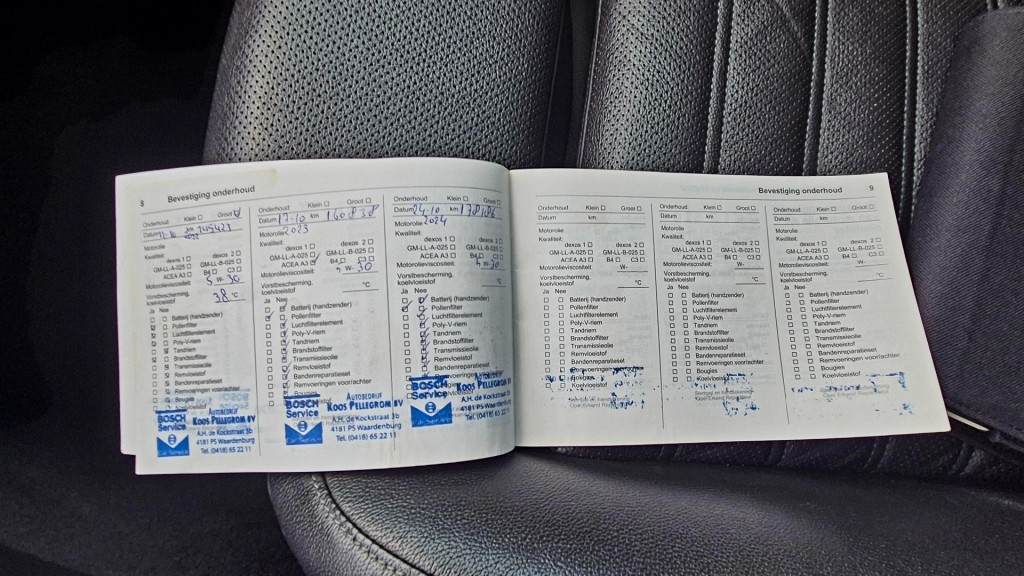 8 Bevestiging onderhoud
Onderhoud: Klein Groot
Datum
Motorolie
Kwaliteit:
dexos 1 dexos 2
GM-LL-A-025 GM-LL-B-025
ACEA A3 B4 C3
Motorolieviscositeit:
5 W 30
Vorstbescherming, koelvloeistof
38 °C
Ja Nee
Batterij (handzender)
Pollenfilter
Luchtfilterelement
Poly-V-riem
Tandriem
Brandstoffilter
Transmissieolie
Remvloeistof
Bandenreparatieset
Remvoeringen voor/achter
Bougies
BOSCH
Service
Car Service
AUTOBEDRIJF
KOOS PELLEGROM BV
A.H. de Kockstraat 3b
4181 PS Waardenburg
Tel. (0418) 65 22 11
Onderhoud: Klein Groot
Datum 17-10 km 160838
Motorolie 2023
Kwaliteit:
dexos 1 dexos 2
GM-LL-A-025 GM-LL-B-025
ACEA A3 B4 C3
Motorolieviscositeit:
5 W 30
Vorstbescherming,
koelvloeistof
°C
Ja Nee
Batterij (handzender)
Pollenfilter
Luchtfilterelement
Poly-V-riem
Tandriem
Brandstoffilter
Transmissieolie
Remvloeistof
Bandenreparatieset
Remvoeringen voor/achter
BOSCH
Service
Car Service
AUTOBEDRIJF
KOOS PELLEGROM BV
A.H. de Kockstraat 3b
4181 PS Waardenburg
Tel. (0418) 65 22 11
Onderhoud: Klein Groot
Datum 24-10 km 178186
Motorolie 2024
Kwaliteit:
dexos 1 dexos 2
GM-LL-A-025 GM-LL-B-025
ACEA A3 B4 C3
Motorolieviscositeit:
W 30
Vorstbescherming,
koelvloeistof
°C
Ja Nee
Batterij (handzender)
Pollenfilter
Luchtfilterelement
Poly-V-riem
Tandriem
Brandstoffilter
Transmissieolie
Remvloeistof
Bandenreparatieset
BOSCH
Service
Car Service
AUTOBEDRIJF
KOOS PELLEGROM BV
A.H. de Kockstraat 3b
4181 PS Waardenburg
Tel. (0418) 65 22 11
Bevestiging onderhoud 9
Onderhoud: Klein Groot
Datum km
Motorolie
Kwaliteit:
dexos 1 dexos 2
GM-LL-A-025 GM-LL-B-025
ACEA A3 B4 C3
Motorolieviscositeit:
W-
Vorstbescherming,
koelvloeistof
°C
Ja Nee
Batterij (handzender)
Pollenfilter
Luchtfilterelement
Poly-V-riem
Tandriem
Brandstoffilter
Transmissieolie
Remvloeistof
Bandenreparatieset
Remvoeringen voor/achter
Koelvloeistof
Onderhoud: Klein Groot
Datum km
Motorolie
Kwaliteit:
dexos 1 dexos 2
GM-LL-A-025 GM-LL-B-025
ACEA A3 B4 C3
Motorolieviscositeit:
W-
Vorstbescherming,
koelvloeistof
°C
Ja Nee
Batterij (handzender)
Pollenfilter
Luchtfilterelement
Poly-V-riem
Tandriem
Brandstoffilter
Transmissieolie
Remvloeistof
Bandenreparatieset
Remvoeringen voor/achter
Bougies
Koelvloeistof
Onderhoud: Klein Groot
Datum km
Motorolie
Kwaliteit:
dexos 1 dexos 2
GM-LL-A-025 GM-LL-B-025
ACEA A3 B4 C3
Motorolieviscositeit:
W-
Vorstbescherming,
koelvloeistof
°C
Ja Nee
Batterij (handzender)
Pollenfilter
Luchtfilterelement
Poly-V-riem
Tandriem
Brandstoffilter
Transmissieolie
Remvloeistof
Bandenreparatieset
Remvoeringen voor/achter
Bougies
Koelvloeistof